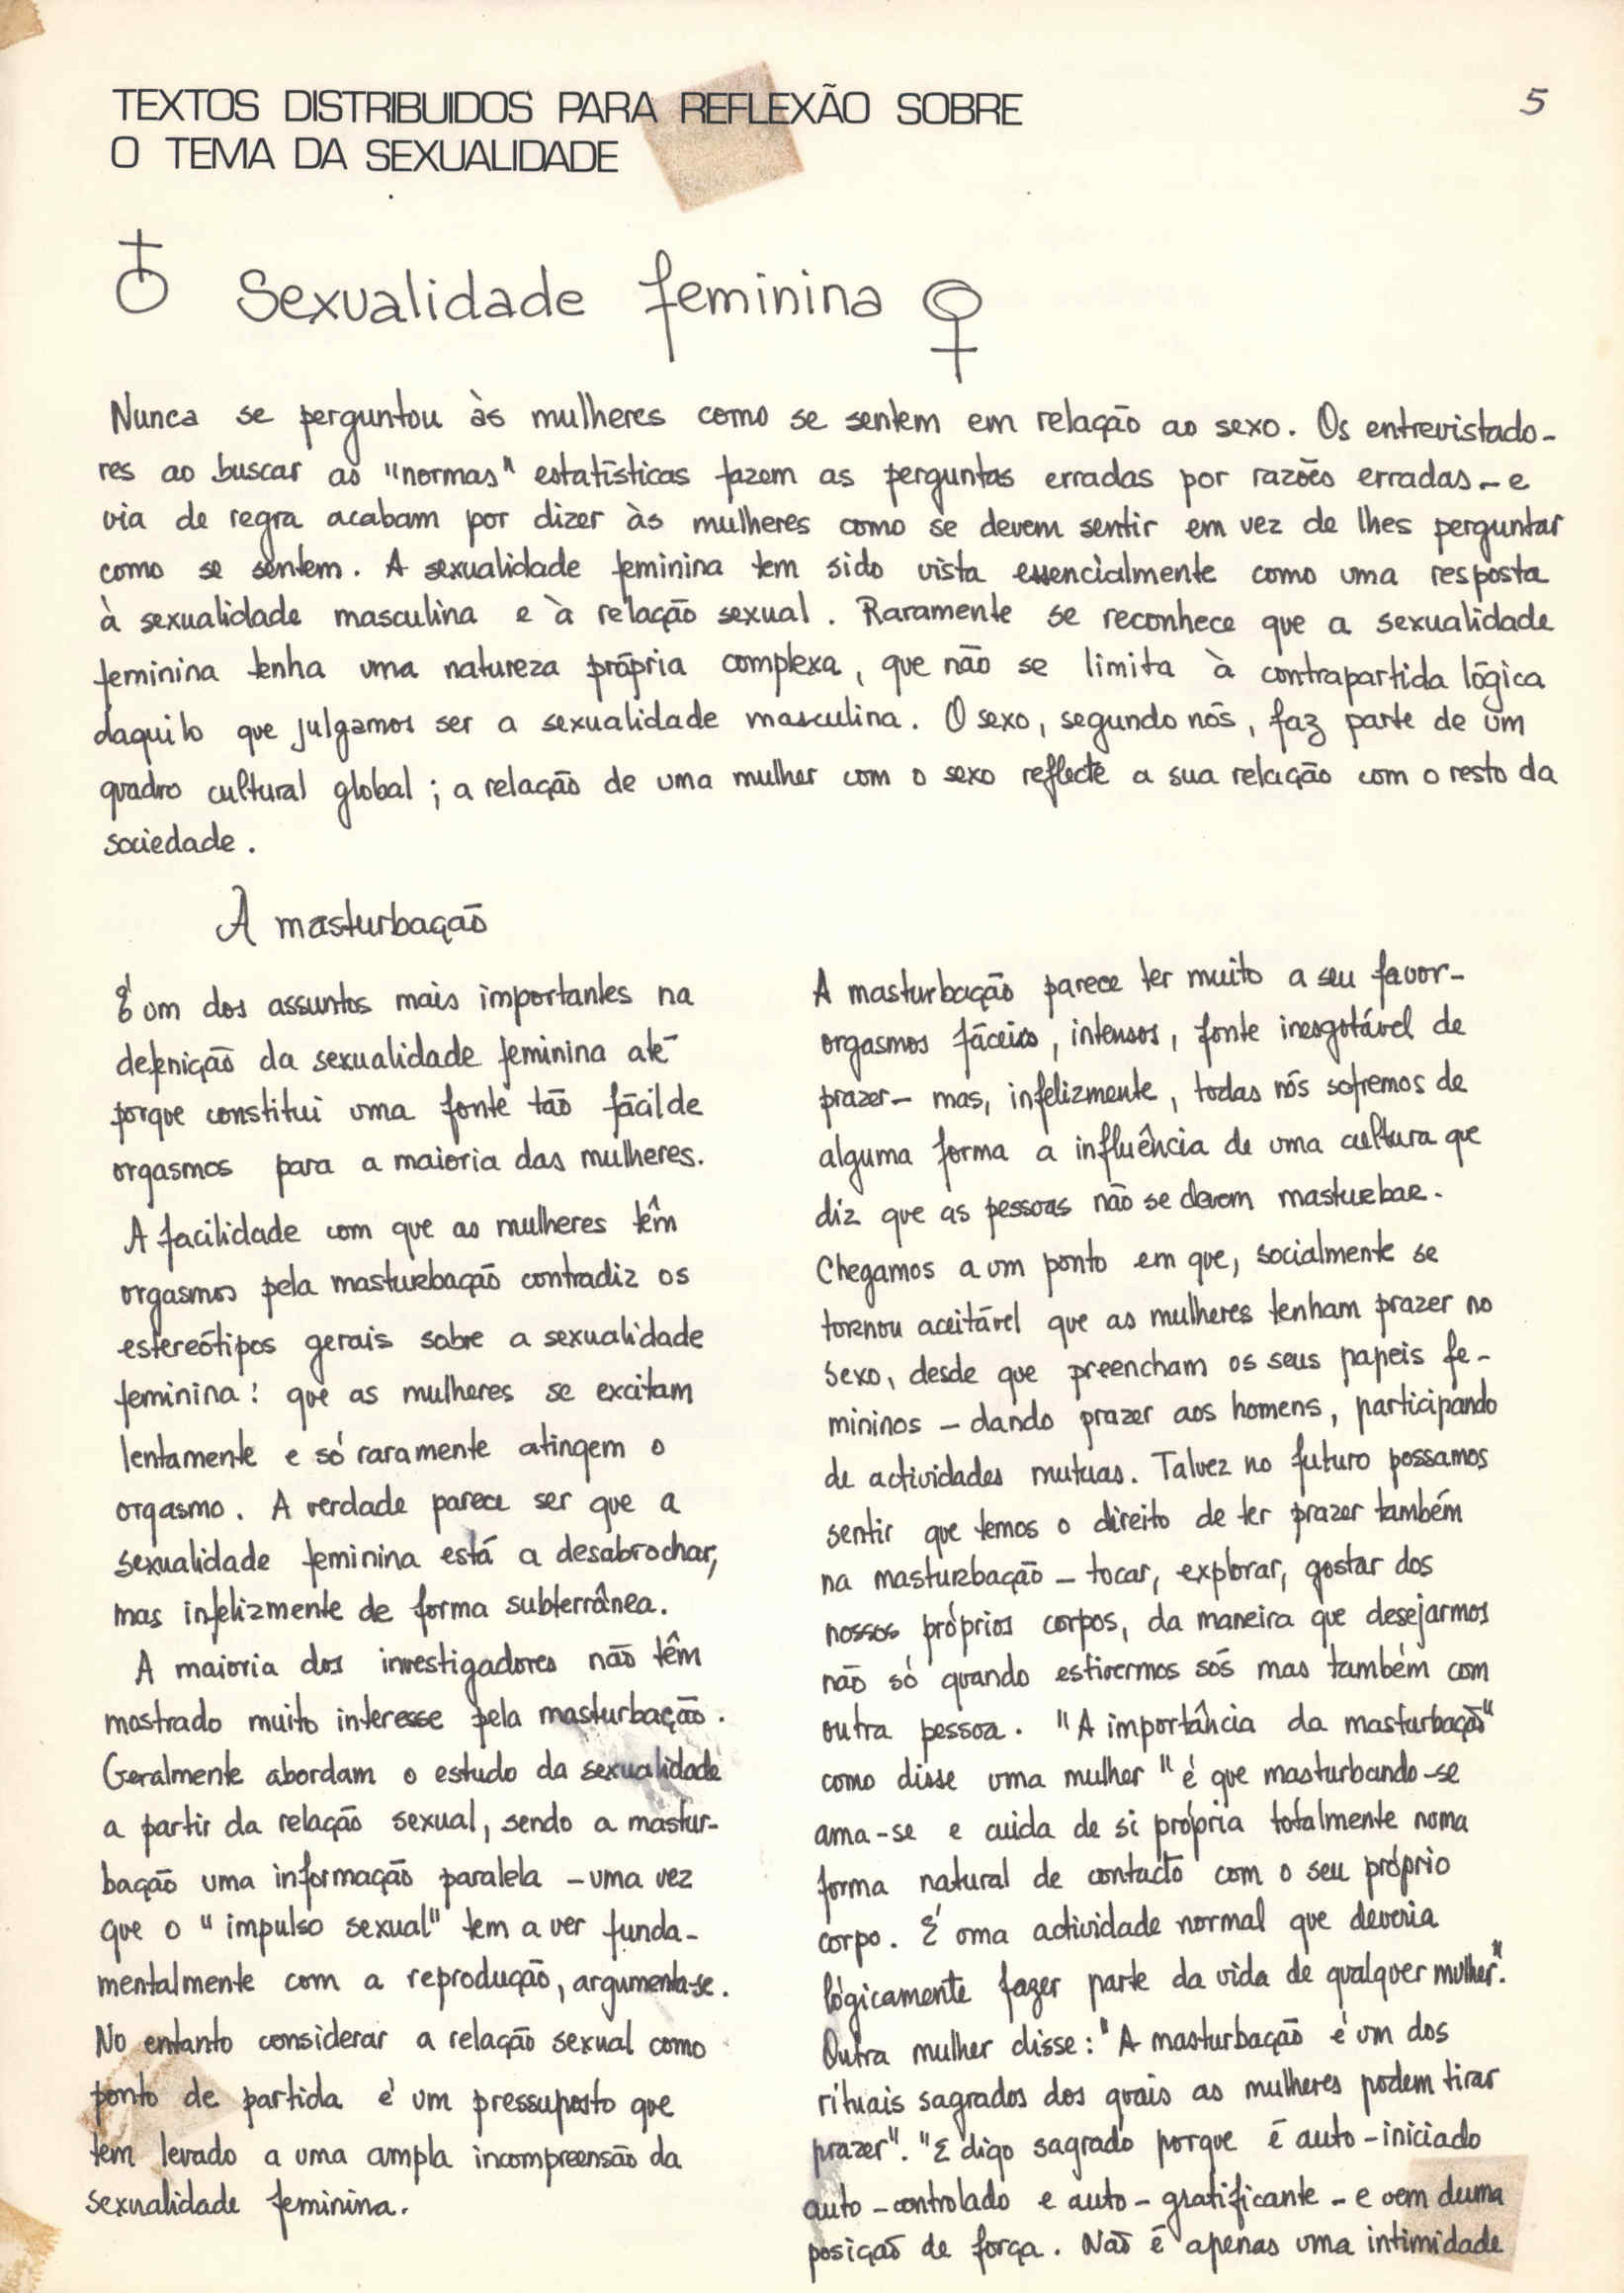 TEXTOS DISTRIBUIDOS PARA REFLEXÃO SOBRE
O TEMA DA SEXUALIDADE
5
Sexualidade feminina
Nunca se perguntou às mulheres como se sentem em relação ao sexo. Os entrevistado-
res ao buscar as "normas" estatísticas fazem as perguntas erradas por razões erradas - e
via de regra acabam por dizer às mulheres como se devem sentir em vez de lhes perguntar
como se sentem. A sexualidade feminina tem sido vista essencialmente como uma resposta
à sexualidade masculina e à relação sexual. Raramente se reconhece que a sexualidade
feminina tenha uma natureza própria complexa, que não se limita à contrapartida lógica
daquilo que julgamos ser a sexualidade masculina. O sexo, segundo nós, faz parte de um
quadro cultural global; a relação de uma mulher com o sexo reflecte a sua relação com o resto da
sociedade.
A masturbação
É um dos assuntos mais importantes na
definição da sexualidade feminina até
porque constitui uma fonte tão fácil de
orgasmos para a maioria das mulheres.
A facilidade com que as mulheres têm
orgasmos pela masturbação contradiz os
estereótipos gerais sobre a sexualidade
feminina: que as mulheres se excitam
lentamente e só raramente atingem o
orgasmo. A verdade parece ser que a
sexualidade feminina está a desabrochar,
mas infelizmente de forma subterrânea.
A maioria dos investigadores não têm
mostrado muito interesse pela masturbação.
Geralmente abordam o estudo da sexualidade
a partir da relação sexual, sendo a mastur-
bação uma informação paralela - uma vez
que o "impulso sexual" tem a ver funda-
mentalmente com a reprodução, argumenta-se.
No entanto considerar a relação sexual como
ponto de partida é um pressuposto que
tem levado a uma ampla incompreensão da
sexualidade feminina.
A masturbação parece ter muito a seu favor-
orgasmos fáceis, intensos, fonte inesgotável de
prazer - mas, infelizmente, todas nós sofremos de
alguma forma a influência de uma cultura que
diz que as pessoas não se devem masturbar.
Chegamos a um ponto em que, socialmente se
tornou aceitável que as mulheres tenham prazer no
sexo, desde que preencham os seus papeis fe-
mininos - dando prazer aos homens, participando
de actividades mutuas. Talvez no futuro possamos
sentir que temos o direito de ter prazer também
na masturbação - tocar, explorar, gostar dos
nossos próprios corpos, da maneira que desejarmos
não só quando estivermos sós mas também com
outra pessoa. "A importância da masturbação"
como disse uma mulher "é que masturbando-se
ama-se e cuida de si própria totalmente numa
forma natural de contacto com o seu próprio
corpo. É uma actividade normal que deveria
lógicamente fazer parte da vida de qualquer mulher."
Outra mulher disse: "A masturbação é um dos
rituais sagrados dos quais as mulheres podem tirar
prazer". "E digo sagrado porque é auto-iniciado
auto-controlado e auto-gratificante - e vem duma
posição de força. Não é apenas uma intimidade